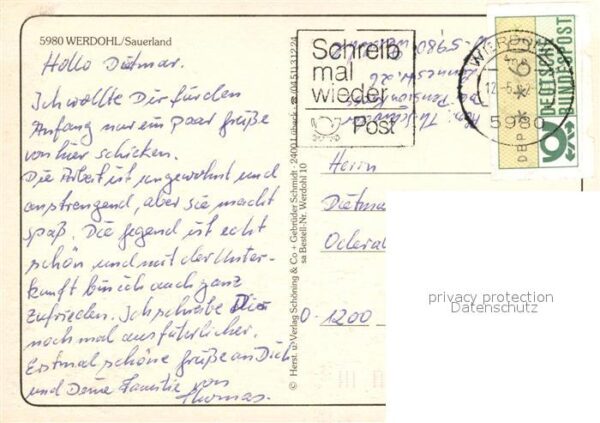 5980 WERDOHL/Sauerland
Hallo Dietmar.
Ich wollte Dir für den
Anfang nur ein paar Grüße
von hier schicken.
Die Arbeit ist ungewohnt und
anstrengend, aber sie macht
spaß. Die Gegend ist echt
schön und mit der Unter-
kunft bin ich auch ganz
zufrieden. Ich schreibe Dir
noch mal ausführlicher.
Erstmal schöne Grüße an Dich
und Deine Familie von
Thomas.
© Herst. u. Verlag Schöning & Co + Gebrüder Schmidt · 2400 Lübeck ☎ (04 51) 3 12 24
sa Bestell-Nr. Werdohl 10
Schreib
mal
wieder
Post
Abs.
Pension
5980
WERDOHL
5980
DBP
DEUTSCHE
BUNDESPOST
Herrn
Dietma
Odera
O-1200
privacy protection
Datenschutz